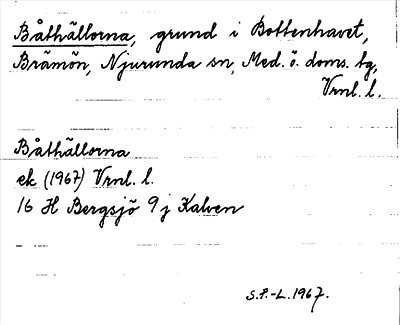 Båthällorna, grund i Bottenhavet,
Brämön, Njurunda sn, Med. ö. doms. tg,
Vrnl. l.
Båthällorna
ek (1967) Vrnl. l.
16 H Bergsjö 9 j Kalven
S.P.-L. 1967.